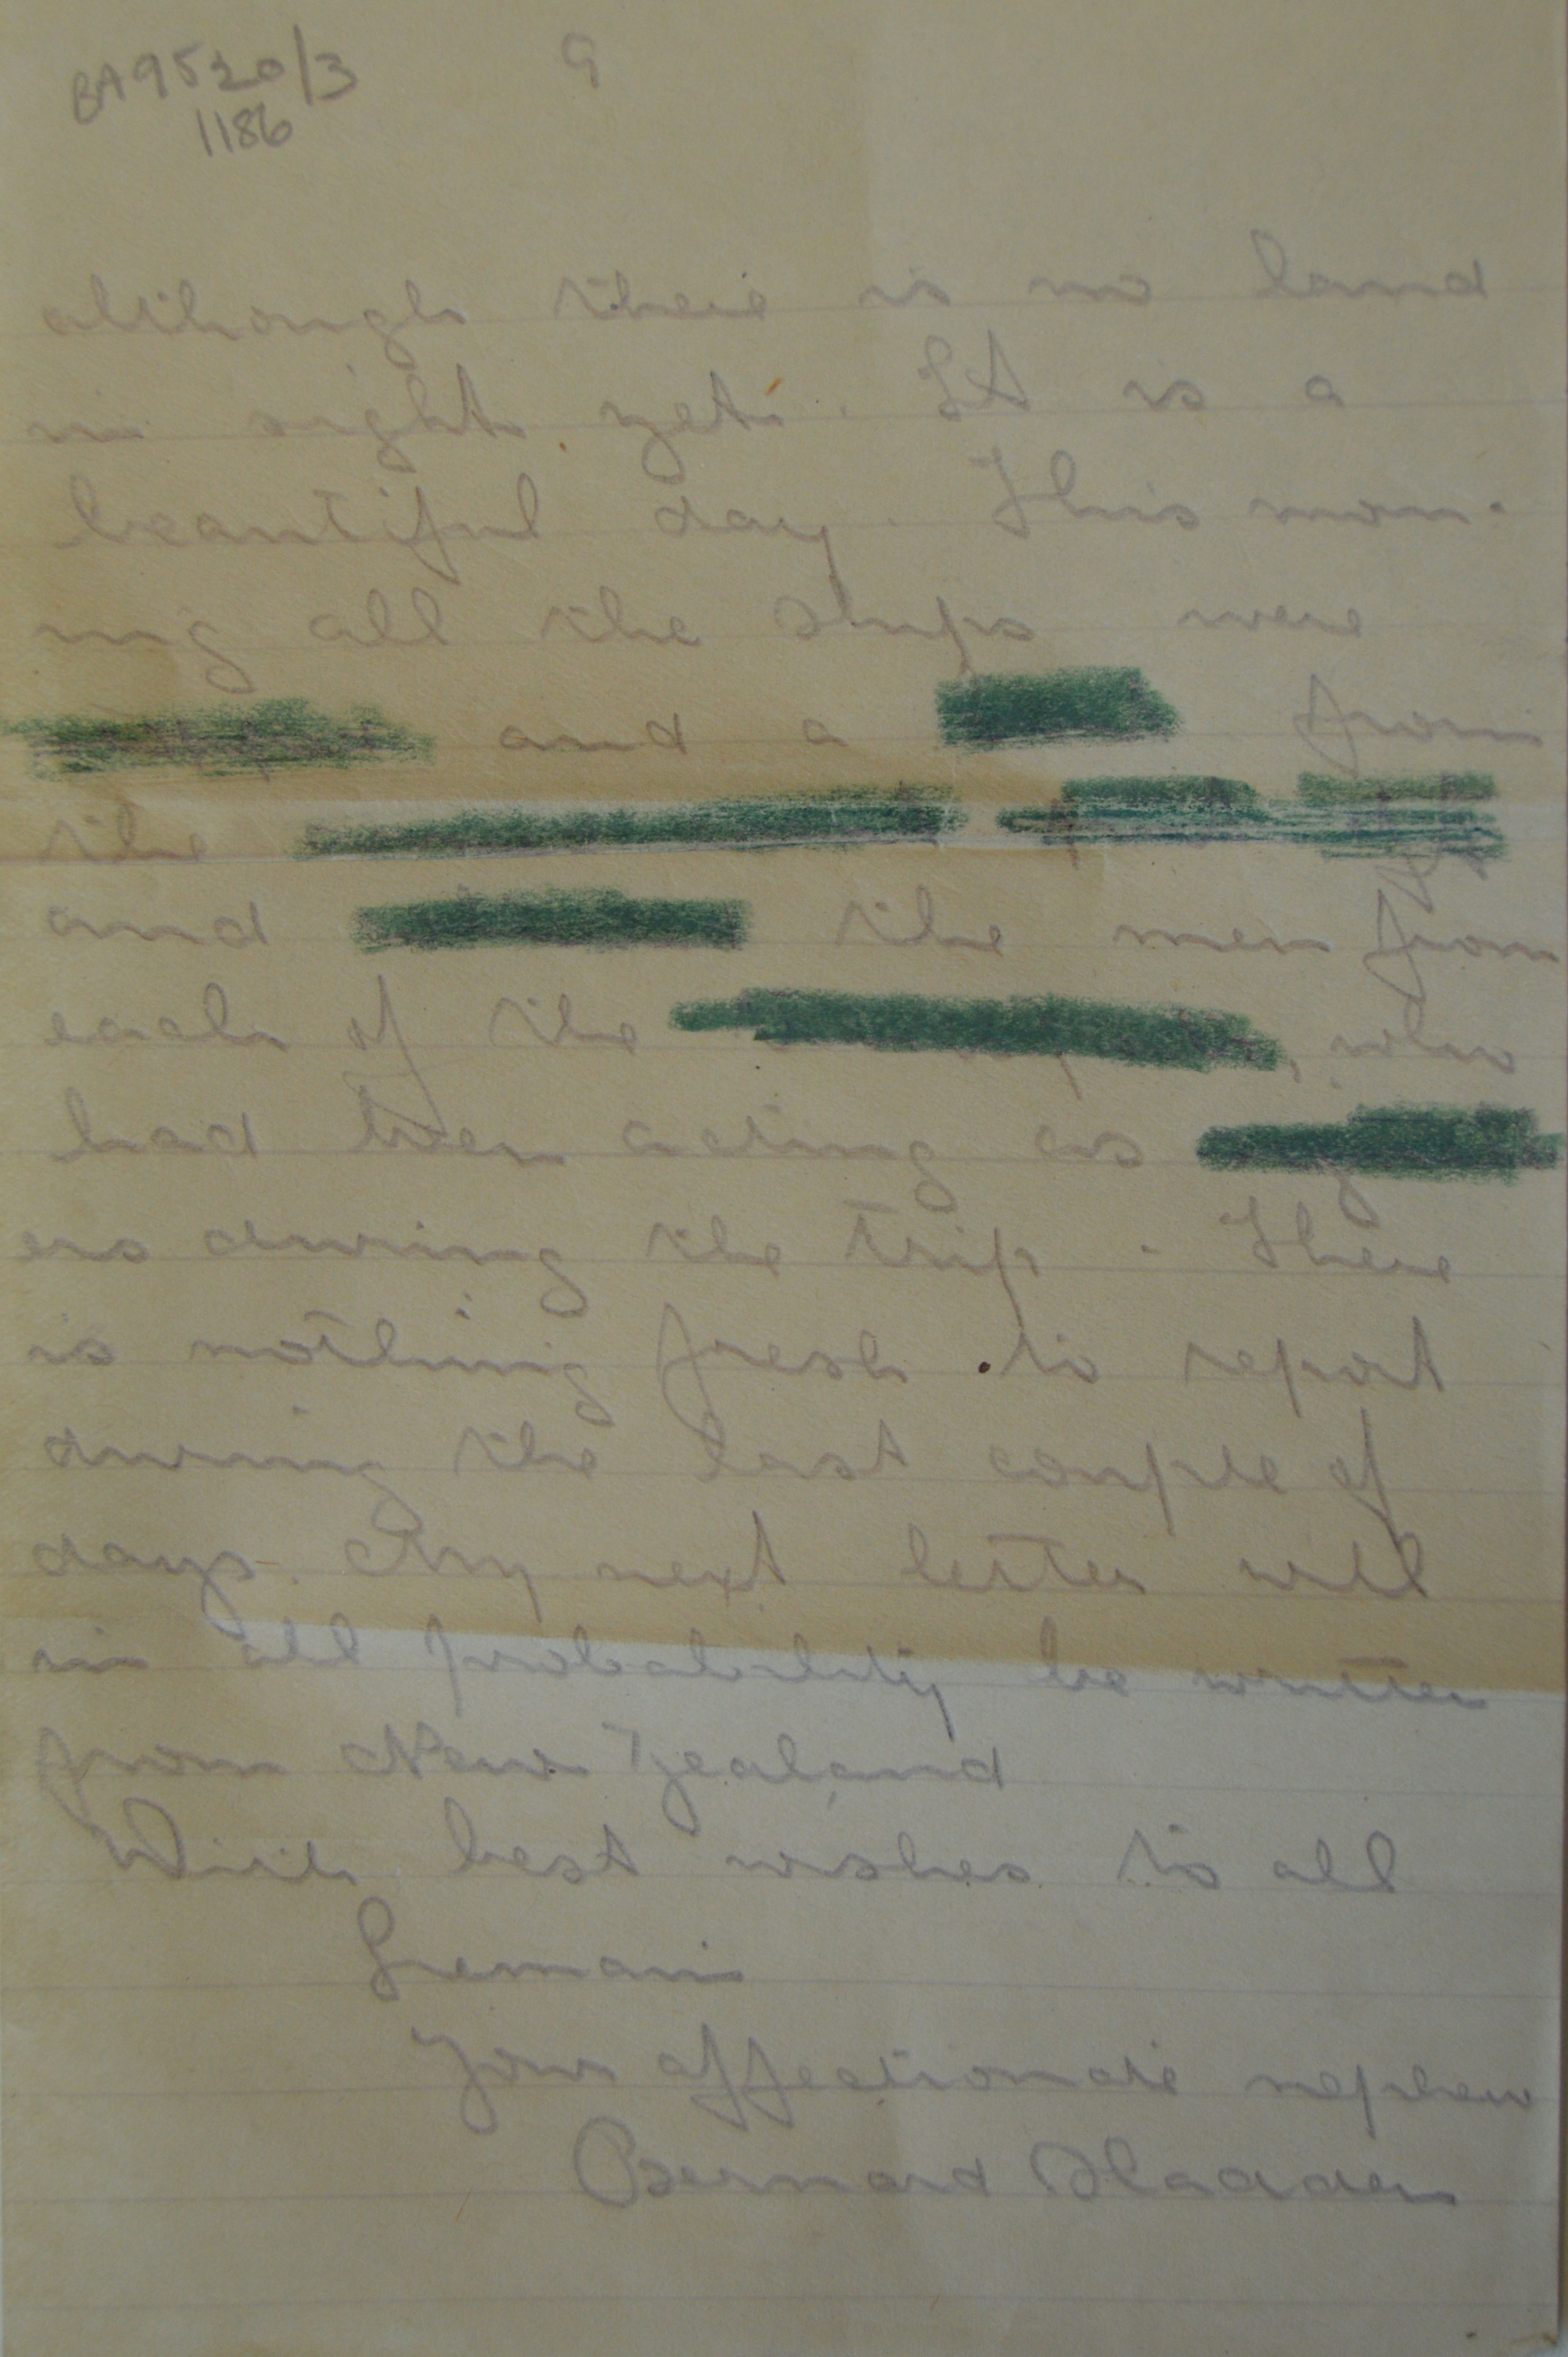 BA9520/3
1186
9
although there is no land
in sight yet. It is a
beautiful day. This morn-
ing all the ships were
and a from
the
and the men from
each of the , who
had been acting as
ers during the trip. There
is nothing fresh to report
during the last couple of
days. My next letter will
in all probability be written
from New Zealand
With best wishes to all
I remain
Your affectionate nephew
Bernard Hadden